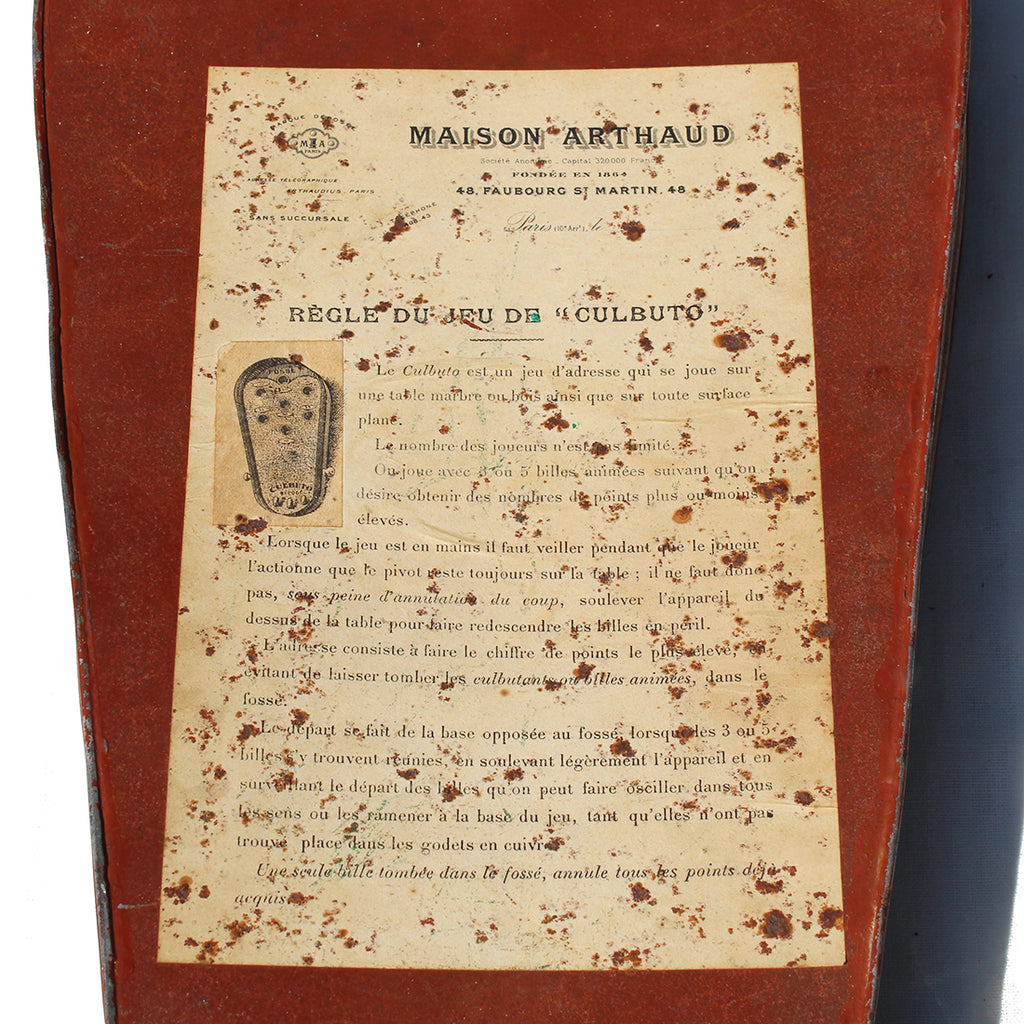 MARQUE DÉPOSÉE
M A
PARIS
ADRESSE TÉLÉGRAPHIQUE
ARTHAUDIUS. PARIS
SANS SUCCURSALE
TÉLÉPHONE
MAISON ARTHAUD
Société Anonyme _ Capital 320.000 Francs
FONDÉE EN 1864
48, FAUBOURG ST MARTIN, 48
Paris (10e Arrt), le
RÈGLE DU JEU DE “CULBUTO”
FOSSÉ
CULBUTO
Le Culbuto est un jeu d'adresse qui se joue sur
une table marbre ou bois ainsi que sur toute surface
plane.
Le nombre des joueurs n'est pas limité.
On joue avec 3 ou 5 billes animées suivant qu'on
désire obtenir des nombres de points plus ou moins
élevés.
Lorsque le jeu est en mains il faut veiller pendant que le joueur
l'actionne que le pivot reste toujours sur la table ; il ne faut donc
pas, sous peine d'annulation du coup, soulever l'appareil du
dessus de la table pour faire redescendre les billes en péril.
L'adresse consiste à faire le chiffre de points le plus élevé, en
évitant de laisser tomber les culbutants ou billes animées, dans le
fossé.
Le départ se fait de la base opposée au fossé, lorsque les 3 ou 5
billes s'y trouvent réunies, en soulevant légèrement l'appareil et en
surveillant le départ des billes qu'on peut faire osciller dans tous
les sens ou les ramener à la base du jeu, tant qu'elles n'ont pas
trouvé place dans les godets en cuivre.
Une seule bille tombée dans le fossé, annule tous les points déjà
acquis.